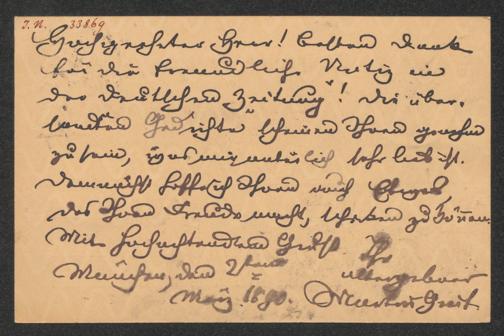 I. N. 33869
Hochgeehrter Herr! besten Dank
für die freundliche Notiz in
der „Deutschen Zeitung"! Die über-
sandten Gedichte scheinen Ihnen genehm
zu sein, was mir natürlich sehr lieb ist.
Demnächst hoffe ich Ihnen noch Einiges
das Ihnen Freude macht, schicken zu können.
Mit hochachtendem Gruß Ihr
ergebener
München, den 2ten
März 1880. Martin Greif